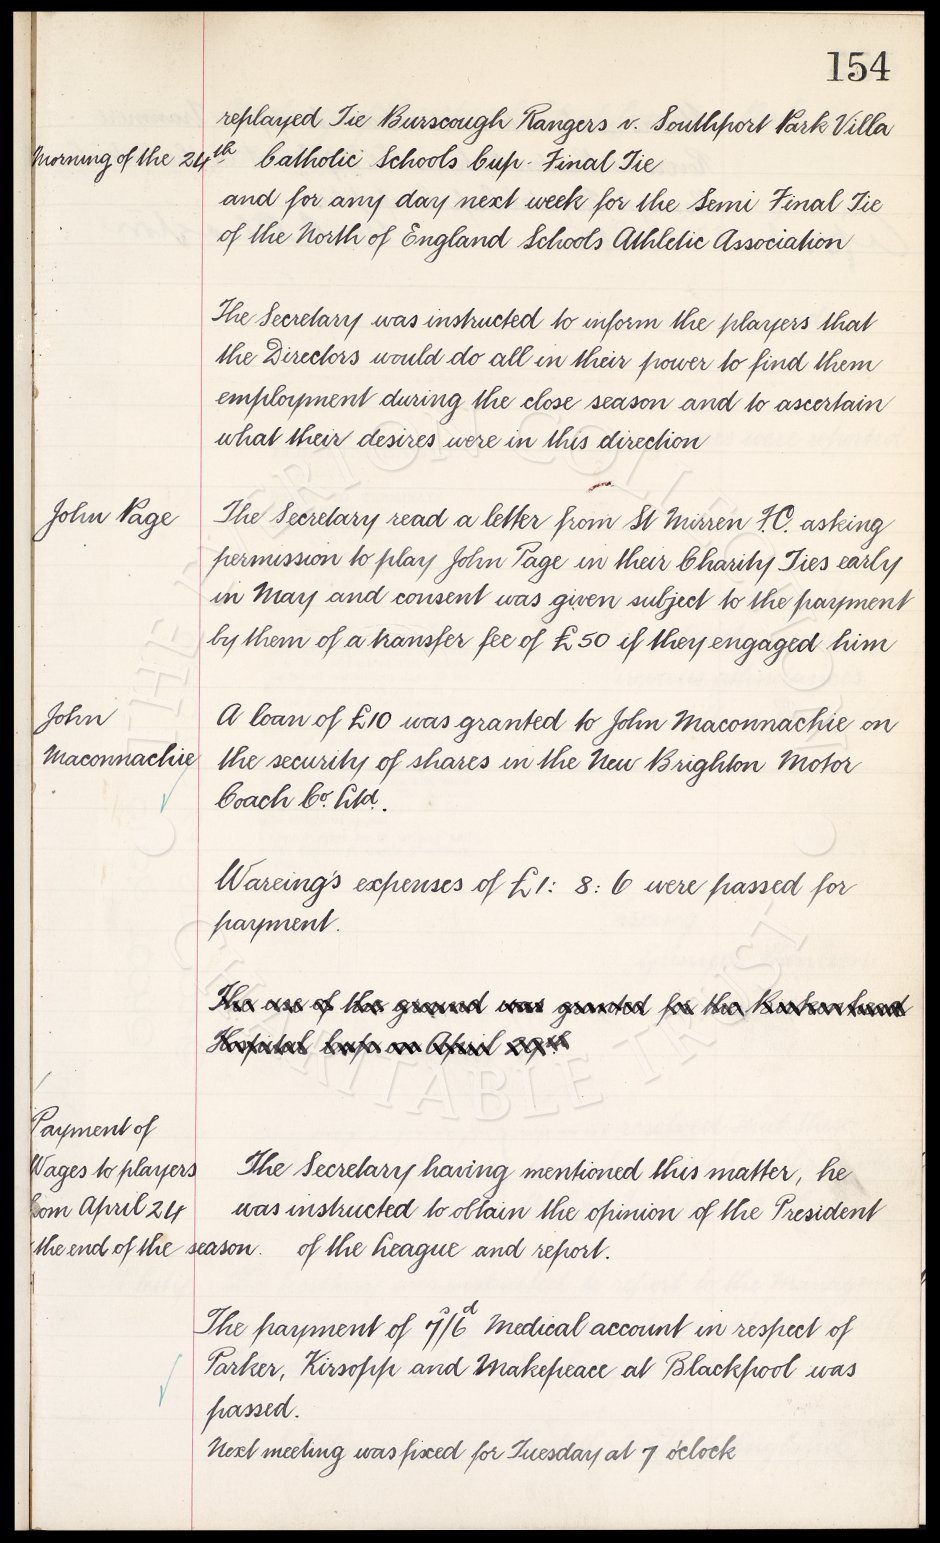 154
replayed Tie Burscough Rangers v. Southport Park Villa
Morning of the 24th Catholic Schools Cup. Final Tie
and for any day next week for the Semi Final Tie
of the North of England Schools Athletic Association
The Secretary was instructed to inform the players that
the Directors would do all in their power to find them
employment during the close season and to ascertain
what their desires were in this direction
John Page
The Secretary read a letter from St Mirren F.C. asking
permission to play John Page in their Charity Ties early
in May and consent was given subject to the payment
by them of a transfer fee of £50 if they engaged him
John
Maconnachie
A loan of £10 was granted to John Maconnachie on
the security of shares in the New Brighton Motor
Coach Co. Ltd.
Wareing's expenses of £1: 8: 6 were passed for
payment.
The use of the ground was granted for the Birkenhead
Hospital Cup on April
Payment of
Wages to players
from April 24
the end of the season.
The Secretary having mentioned this matter, he
was instructed to obtain the opinion of the President
of the League and report.
The payment of 7s/6d Medical account in respect of
Parker, Kirsopp and Makepeace at Blackpool was
passed.
Next meeting was fixed for Tuesday at 7 o'clock
THE EVERTON COLLECTION
CHARITABLE TRUST